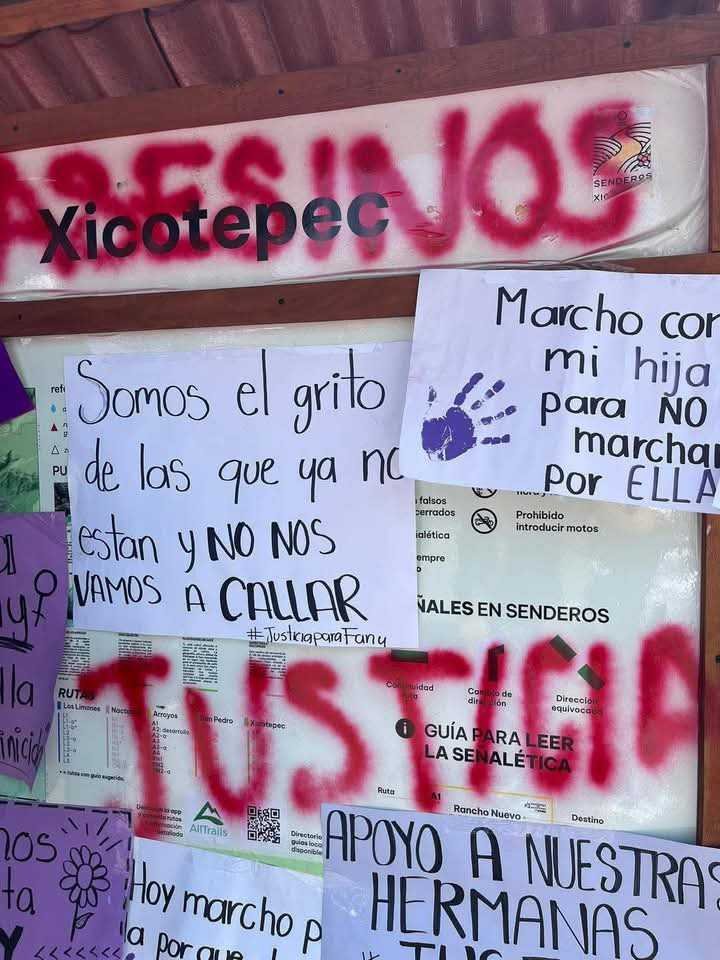 ASESINOS
Xicotepec
SENDEROS
Marcho con
mi hija
para NO
marchar
por ELLA
Somos el grito
de las que ya no
estan y NO NOS
VAMOS A CALLAR
#JusticiaparaFany
falsos
cerrados
Prohibido
introducir motos
ÑALES EN SENDEROS
JUSTICIA
Continuidad
ruta
Cambio de
dirección
Dirección
equivocada
GUÍA PARA LEER
LA SEÑALÉTICA
Ruta
A1
Rancho Nuevo
Destino
RUTAS
Los Limones
Arroyos
San Pedro
Xicotepec
AllTrails
Directorio
guías
disponible
lla
APOYO A NUESTRAS
HERMANAS
Hoy marcho p
a por que
nos
ta